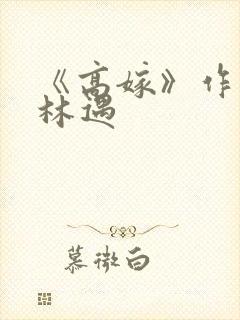 《高嫁》作
林遇
慕微白